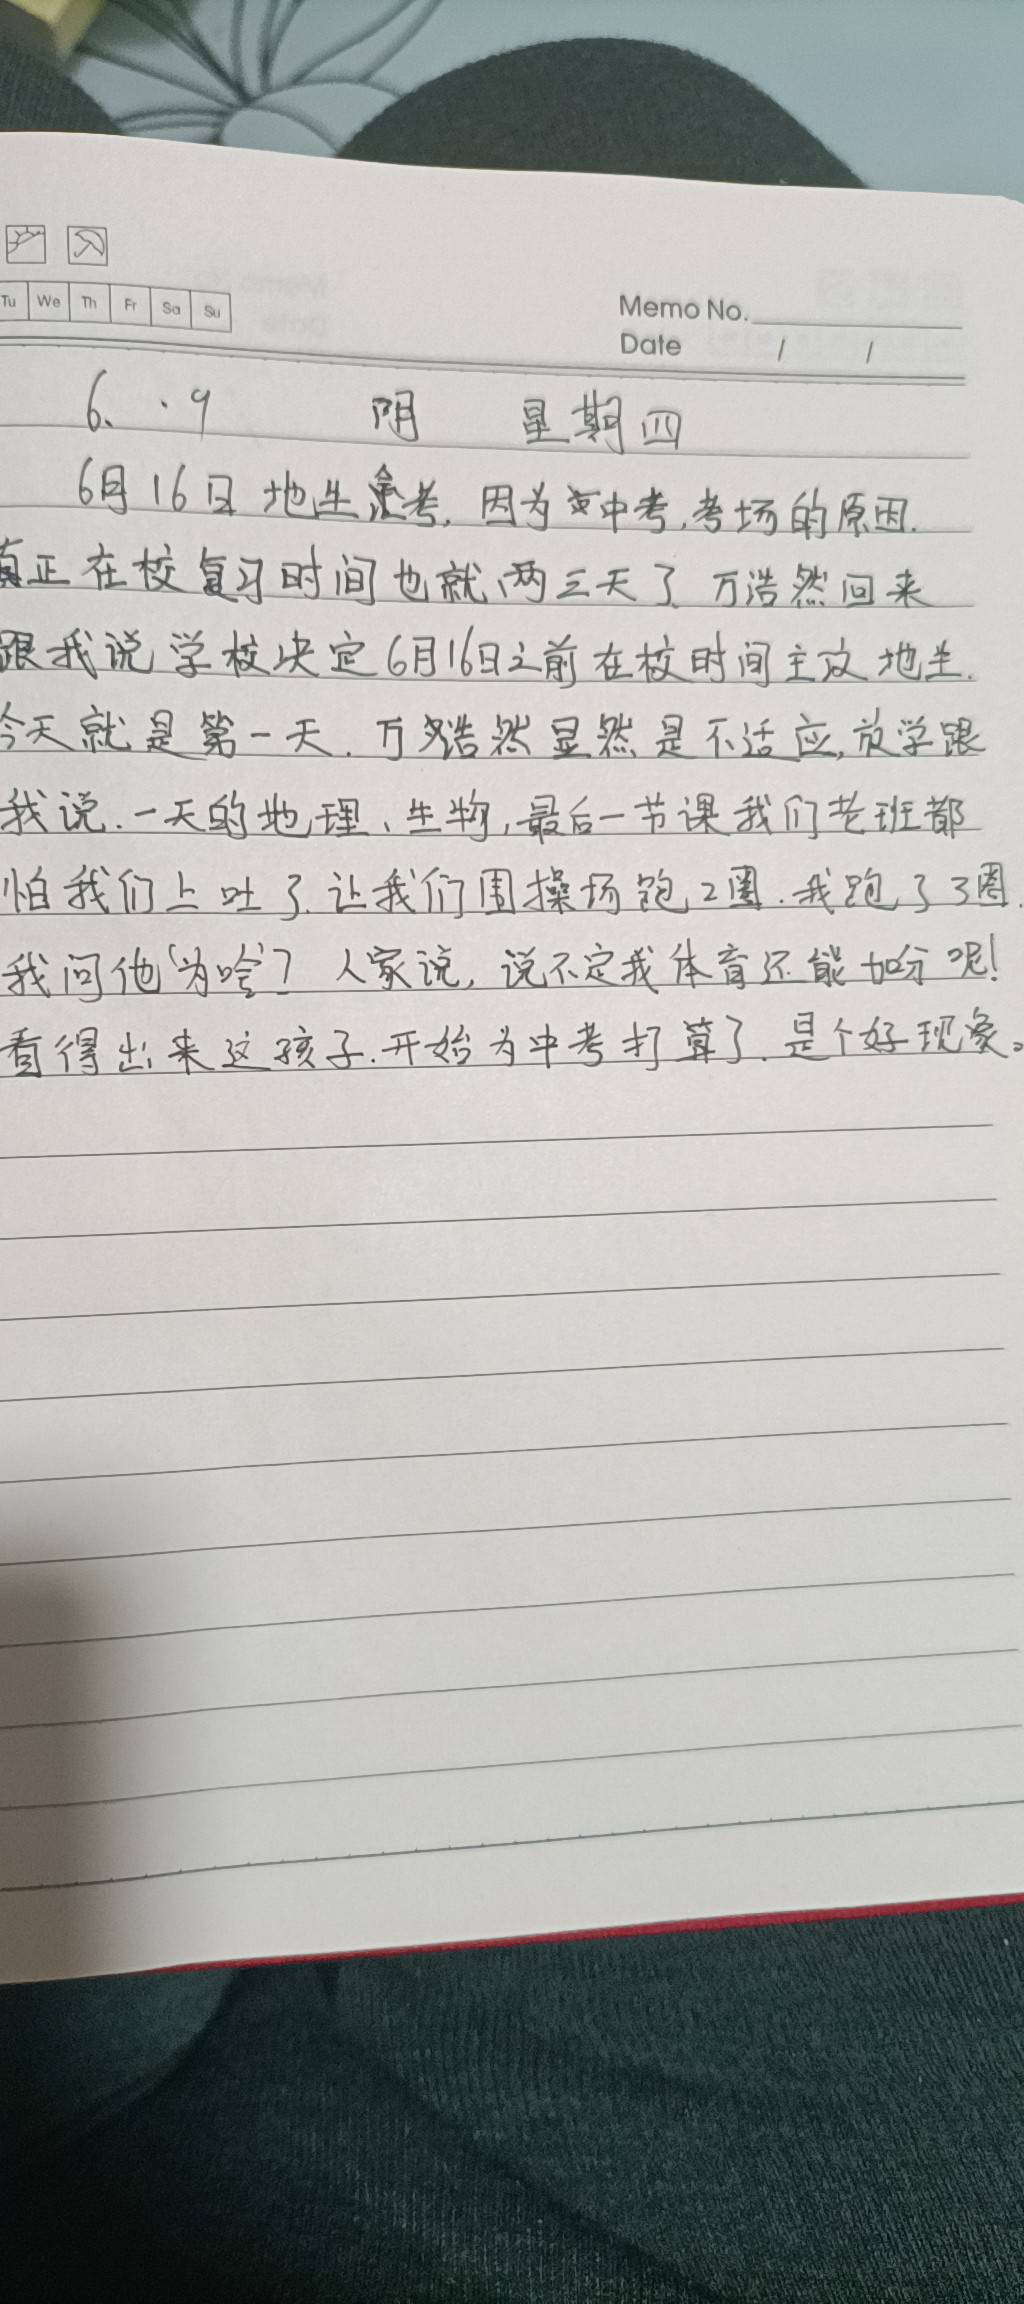 Tu We Th Fr Sa Su
Memo No.
Date / /
6. .9 阴 星期四
6月16日地生会考,因为中考,考场的原因.
真正在校复习时间也就两三天了.万浩然回来
跟我说学校决定6月16日之前在校时间主攻地生.
今天就是第一天.万浩然显然是不适应,放学跟
我说.一天的地理、生物,最后一节课我们老班都
怕我们上吐了.让我们围操场跑2圈.我跑了3圈.
我问他“为啥”? 人家说,说不定我体育还能加分呢!
看得出来这孩子.开始为中考打算了.是个好现象。